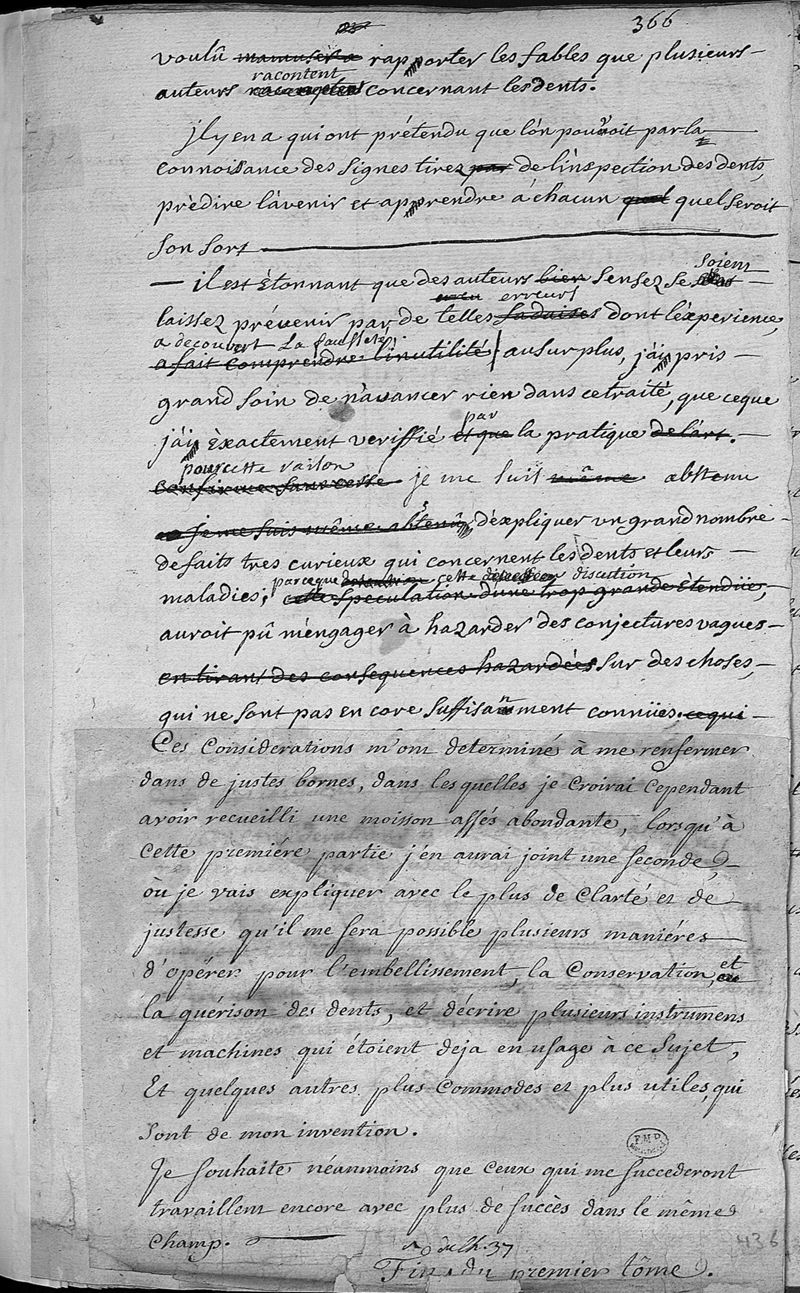 366
voulû m'amuser a rapporter les fables que plusieurs
racontent
auteurs concernant les dents.
il y en a qui ont prétendu que l'on pouvoit par la
connoissance des signes tirez par de l'inspection des dents,
prèdire l'àvenir et apprendre à chacun quel quel seroit
son sort
il est ètonnant que des auteurs bien sensez se soient
erreurs
laissez prévenir par de telles fadaises dont l'èxperience
a decouvert la fausseté
a fait comprendre l'inutilité au surplus, j'ai pris
grand soin de n'avancer rien dans ce traité, que ce que
par
j'ai èxactement veriffié et que la pratique de l'art.
pour cette raison
confirme sans cesse je me suis même abstenu
je me suis même abtenû d'èxpliquer un grand nombre
de faits tres curieux qui concernent les dents et leurs
parceque cette discution
maladies, cette speculation d'une trop grande ètendüe,
auroit pû m'engager à hazarder des conjectures vagues
en tirant des consequences hazardées sur des choses,
qui ne sont pas encore suffisamment connües. ce qui
Ces considerations m'ont determiné à me renfermer
dans de justes bornes, dans lesquelles je croirai cependant
avoir recueilli une moisson assés abondante, lorsqu'à
cette premiére partie j'en aurai joint une seconde,
où je vais expliquer avec le plus de clarté et de
justesse qu'il me sera possible plusieurs maniéres
d'opérer pour l'embellissement, la conservation, et
la guérison des dents, et décrire plusieurs instrumens
et machines qui étoient deja en usage à ce sujet,
Et quelques autres plus commodes et plus utiles, qui
sont de mon invention.
Je souhaite néanmoins que ceux qui me succederont
travaillent encore avec plus de succès dans le même
champ.
Fin du premier tôme.